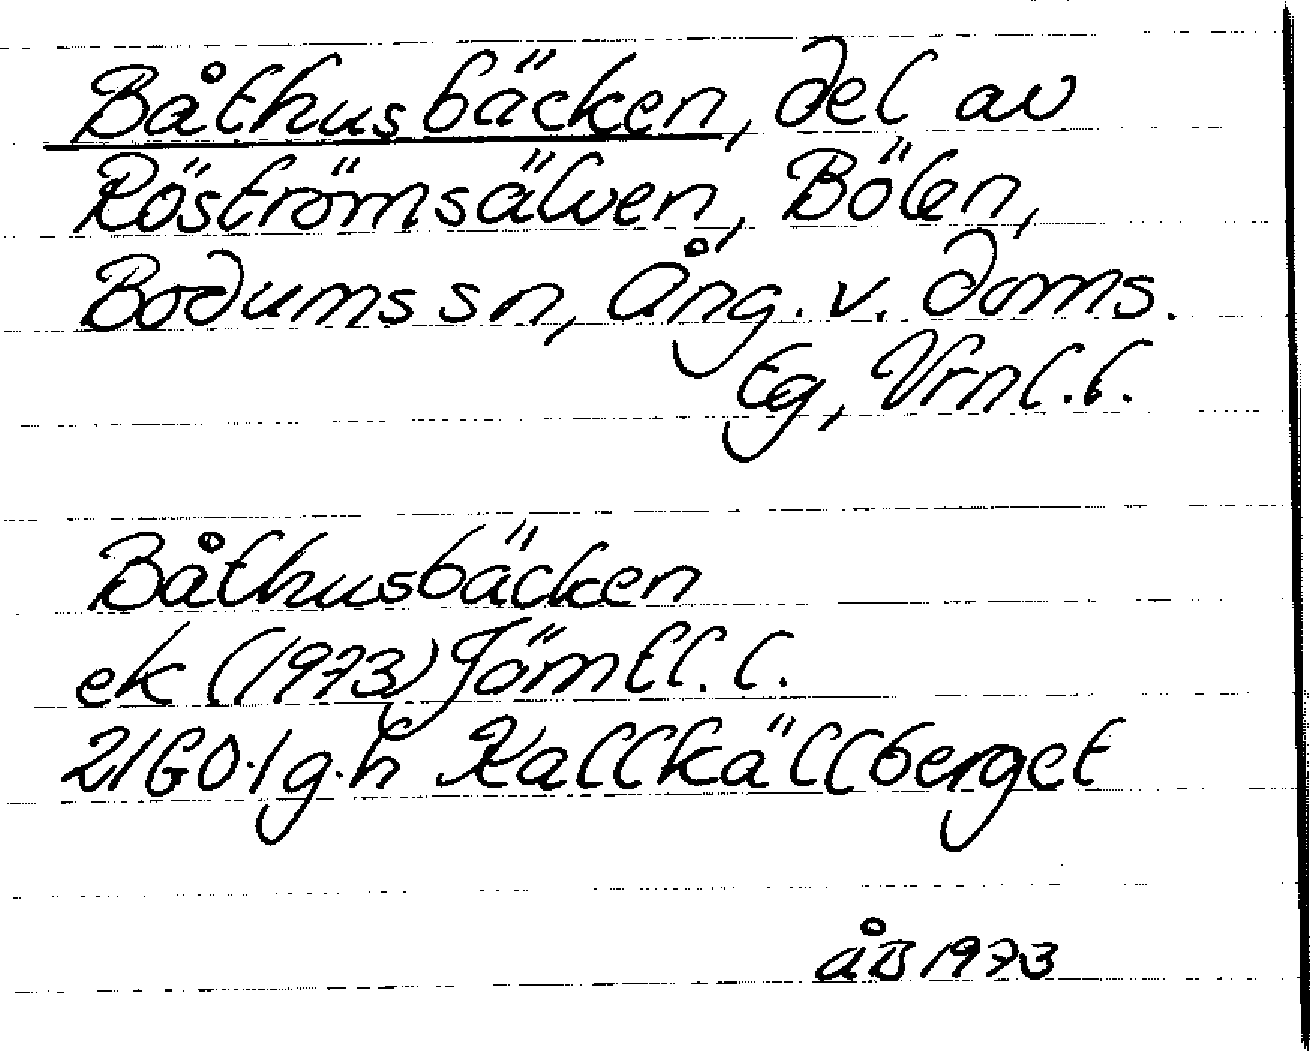 Båthusbäcken, del av
Röströmsälven, Bölen,
Bodums sn, Ång. v. doms.
Eg, Vrnl. l.
Båthusbäcken
ek (1973) Jämtl. l.
21G0·1g·h Kallkällberget
åB 1973